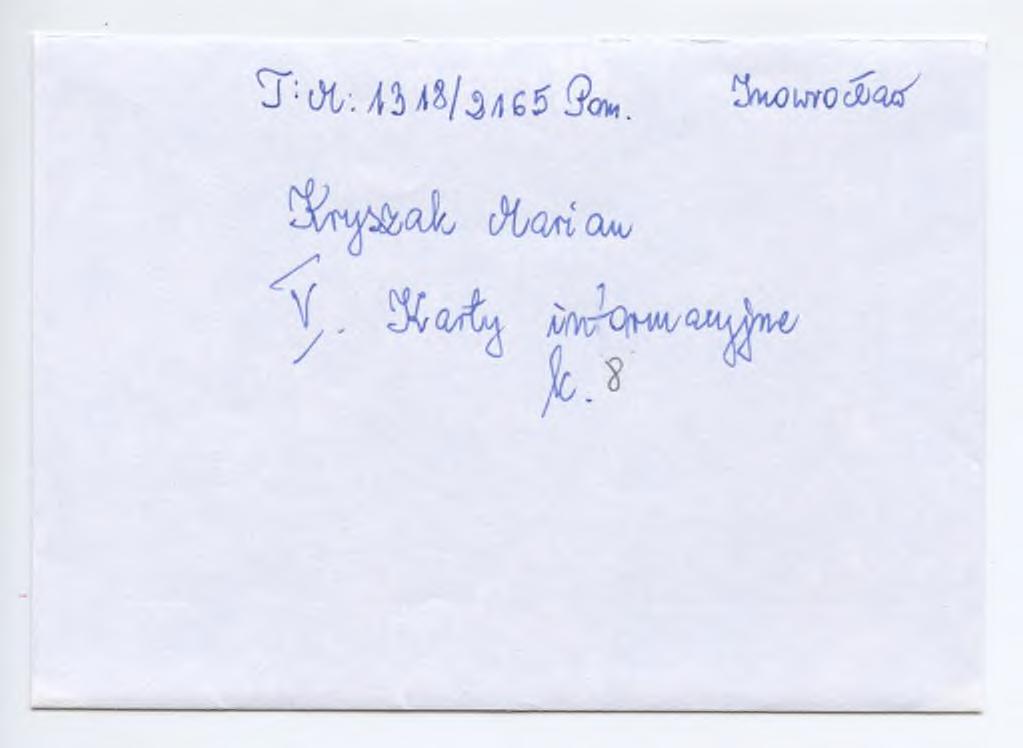 T: M: 1318/2165 Pom. Inowrocław
Kryszak Marian
V. Karty informacyjne
k. 8